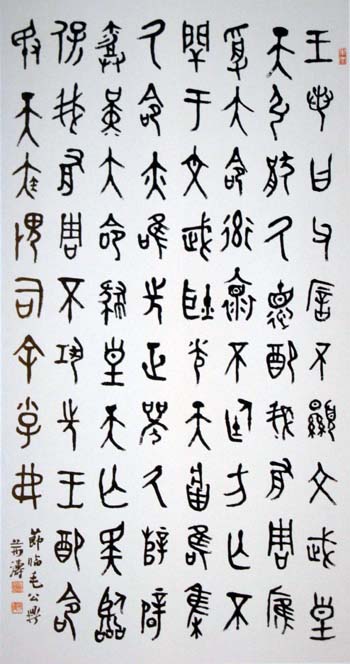 王若曰父歆不顯文武皇
天弘猒厥德配我有周膺
受大命率懷不廷方亡不
閈于文武耿光天將集
厥命亦唯先正厥辟
堇大命肆皇天亡斁臨
保我有周不巩先王配命
敃天疾畏司余小子弗
節臨毛公鼎